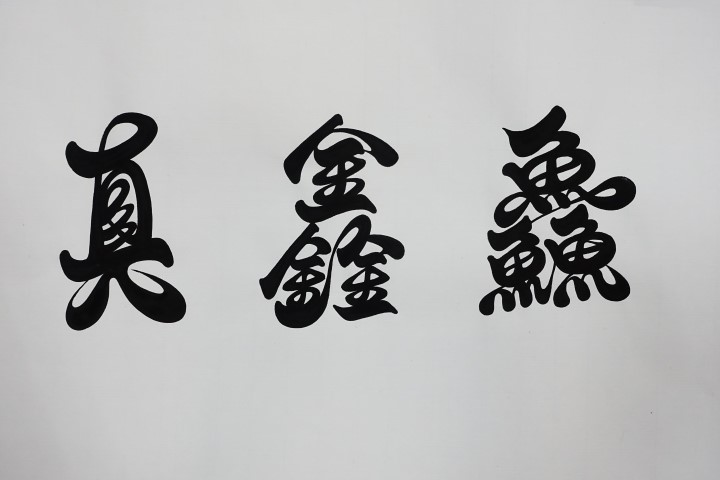 真鑫鱻